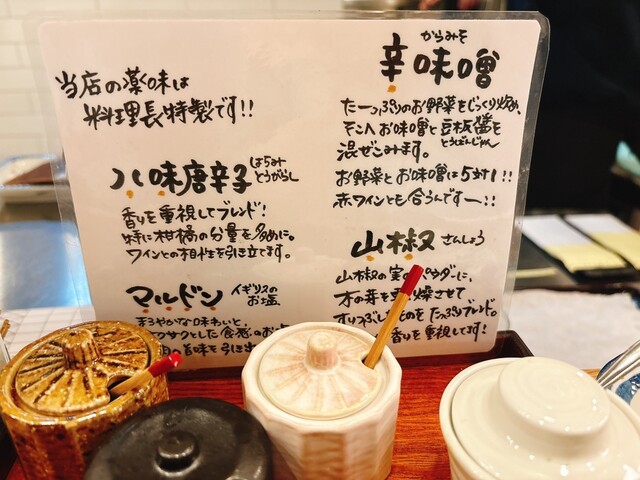 当店の薬味は
料理長特製です!!
八味唐辛子
はちみ
とうがらし
香りを重視してブレンド!
特に柑橘の分量を多めに。
ワインとの相性を引き立てます。
マルドン
イギリスの
お塩
まろやかな味わいと、
サクとした食感のお
旨味を引き
からみそ
辛味噌
たーっぷりのお野菜をじっくり炒め、
そこへお味噌と豆板醤を
とうばんじゃん
混ぜこみます。
お野菜とお味噌は5対1!!
赤ワインとも合うんですー!!
山椒
さんしょう
山椒の実のパウダーに、
木の芽を 燥させて
すりつぶしたものをたっぷりブレンド。
香りを重視してます!